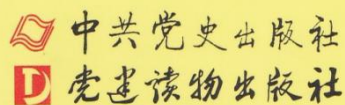 中共党史出版社
党建读物出版社